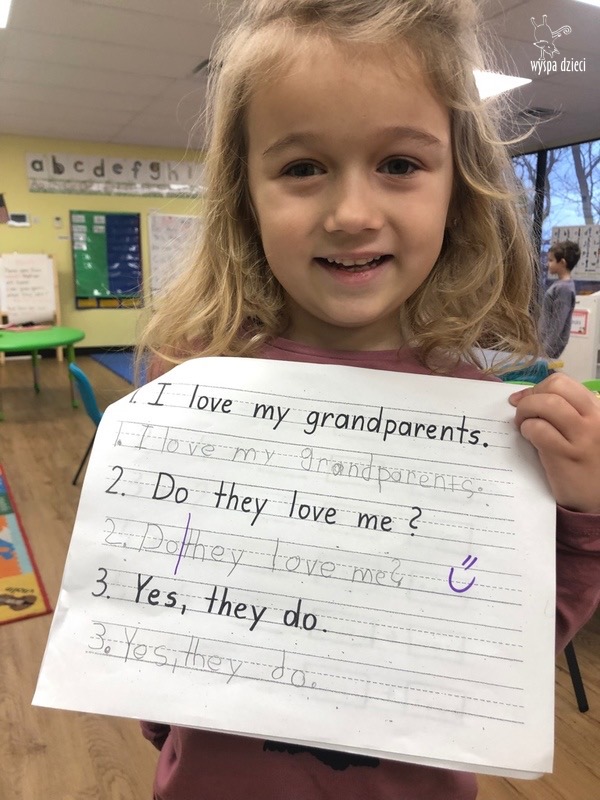 wyspa dzieci
a b c d e f g h i
1. I love my grandparents.
1. I love my grandparents.
2. Do they love me?
2. Do they love me?
3. Yes, they do.
3. Yes, they do.